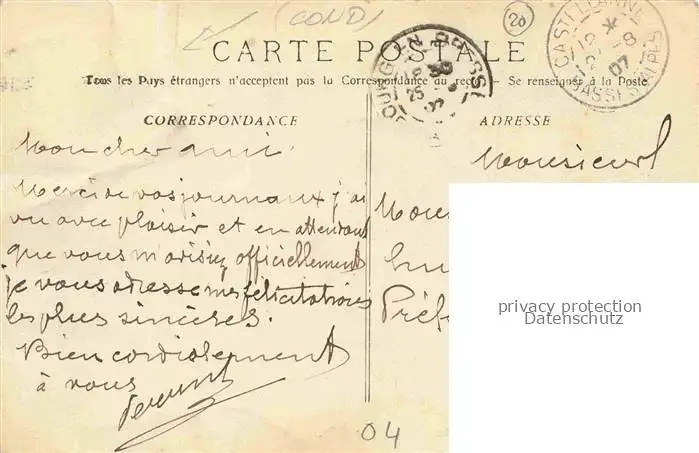 (COND)
20
CARTE POSTALE
Tous les Pays étrangers n'acceptent pas la Correspondance au recto - Se renseigner à la Poste
CORRESPONDANCE
ADRESSE
CASTELLANNE
BASSES ALPES
07
25
Mon cher ami
Merci de vos journaux j'ai
vu avec plaisir et en attendant
que vous m'avisiez officiellement
je vous adresse mes félicitations
les plus sincères.
Bien cordialement
à vous
Monsieur
Préf
04
privacy protection
Datenschutz